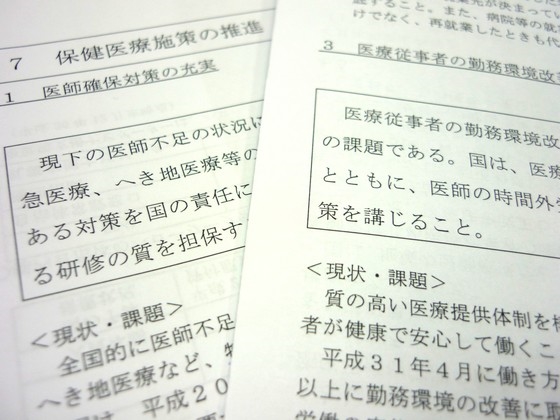 7 保健医療施策の推進
1 医師確保対策の充実
現下の医師不足の状況に
急医療、へき地医療等の
ある対策を国の責任に
る研修の質を担保す
＜現状・課題＞
全国的に医師不足
へき地医療など、特
平成20
すること。また、病院等の就
けでなく、再就業したときも代
3 医療従事者の勤務環境改
医療従事者の勤務環境改
の課題である。国は、医療
とともに、医師の時間外労
策を講じること。
＜現状・課題＞
質の高い医療提供体制を
者が健康で安心して働くこ
平成31年4月に働き方
以上に勤務環境の改善に